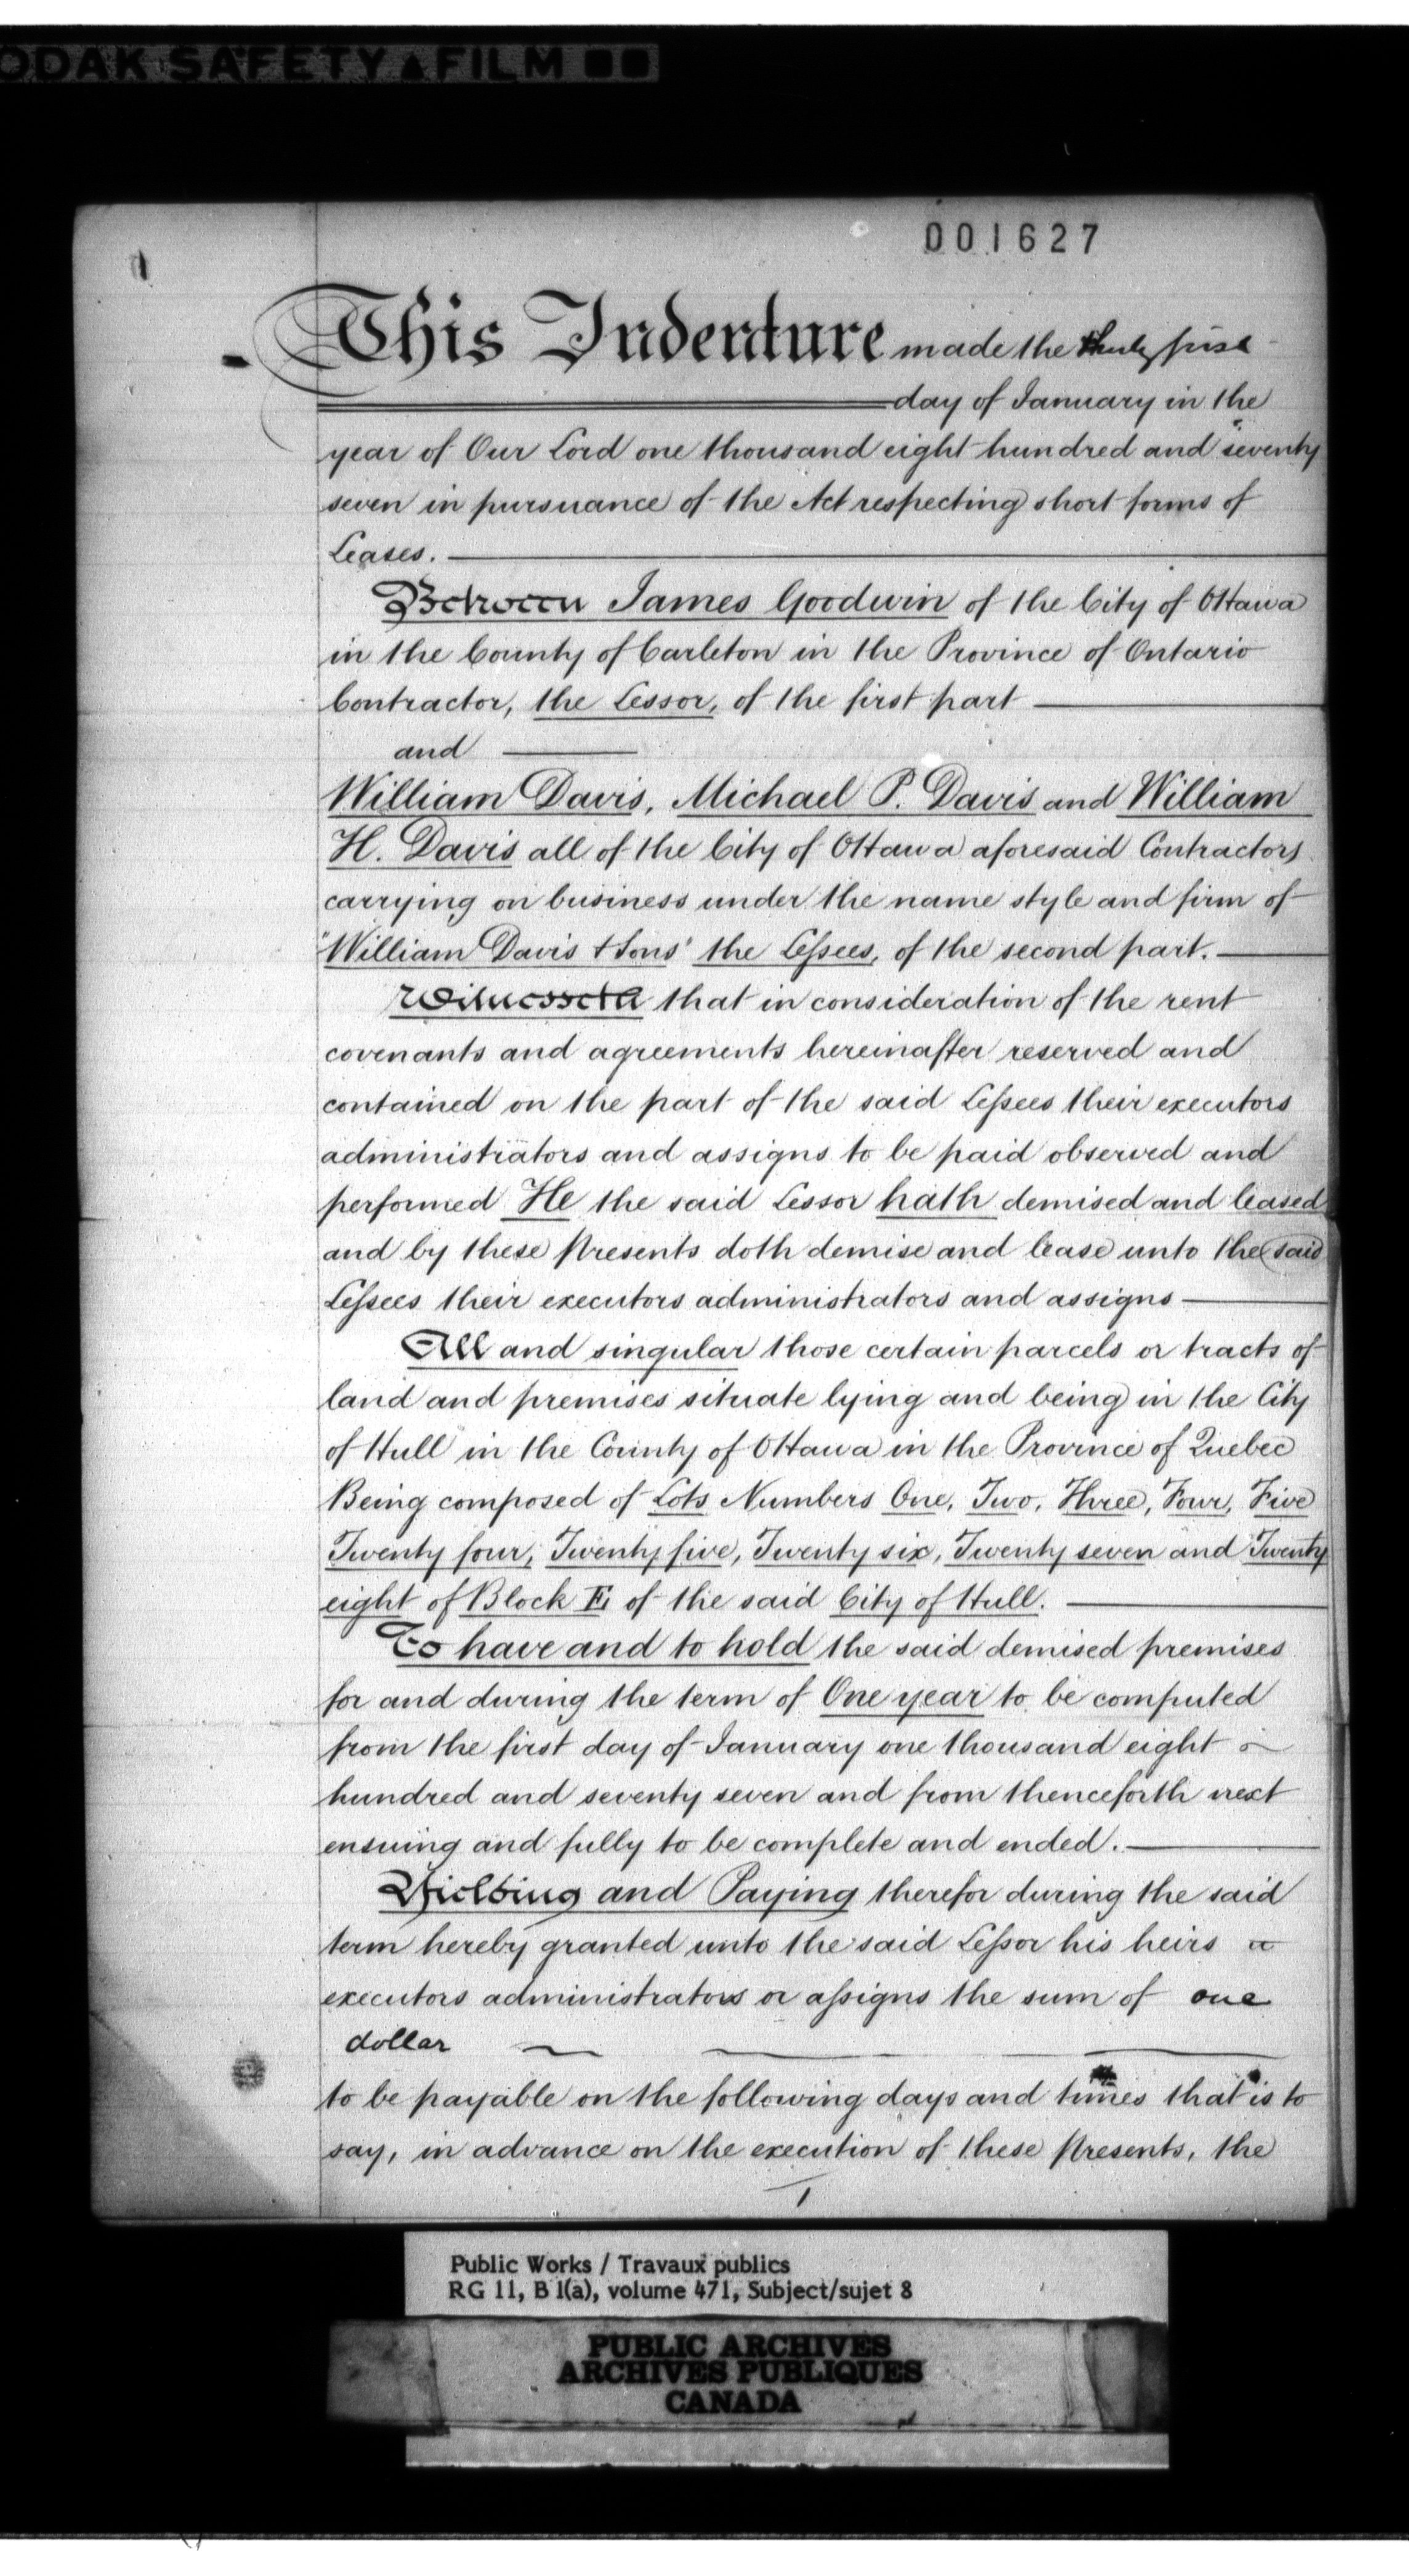 ODAK SAFETY ▲ FILM
001627
1
This Indenture made the thirty first
day of January in the
year of Our Lord one thousand eight hundred and seventy
seven in pursuance of the Act respecting short forms of
Leases.
Between James Goodwin of the City of Ottawa
in the County of Carleton in the Province of Ontario
Contractor, the Lessor, of the first part
and
William Davis, Michael P. Davis and William
H. Davis all of the City of Ottawa aforesaid Contractors
carrying on business under the name style and firm of
'William Davis & Sons' the Lessees, of the second part.
Witnesseth that in consideration of the rent
covenants and agreements hereinafter reserved and
contained on the part of the said Lessees their executors
administrators and assigns to be paid observed and
performed He the said Lessor hath demised and leased
and by these Presents doth demise and lease unto the said
Lessees their executors administrators and assigns
All and singular those certain parcels or tracts of
land and premises situate lying and being in the City
of Hull in the County of Ottawa in the Province of Quebec
Being composed of Lots Numbers One, Two, Three, Four, Five
Twenty four, Twenty five, Twenty six, Twenty seven and Twenty
eight of Block E, of the said City of Hull.
To have and to hold the said demised premises
for and during the term of One year to be computed
from the first day of January one thousand eight
hundred and seventy seven and from thenceforth next
ensuing and fully to be complete and ended.
Yielding and Paying therefor during the said
term hereby granted unto the said Lessor his heirs
executors administrators or assigns the sum of one
dollar
to be payable on the following days and times that is to
say, in advance on the execution of these Presents, the
1
Public Works / Travaux publics
RG 11, B 1(a), volume 471, Subject/sujet 8
PUBLIC ARCHIVES
ARCHIVES PUBLIQUES
CANADA